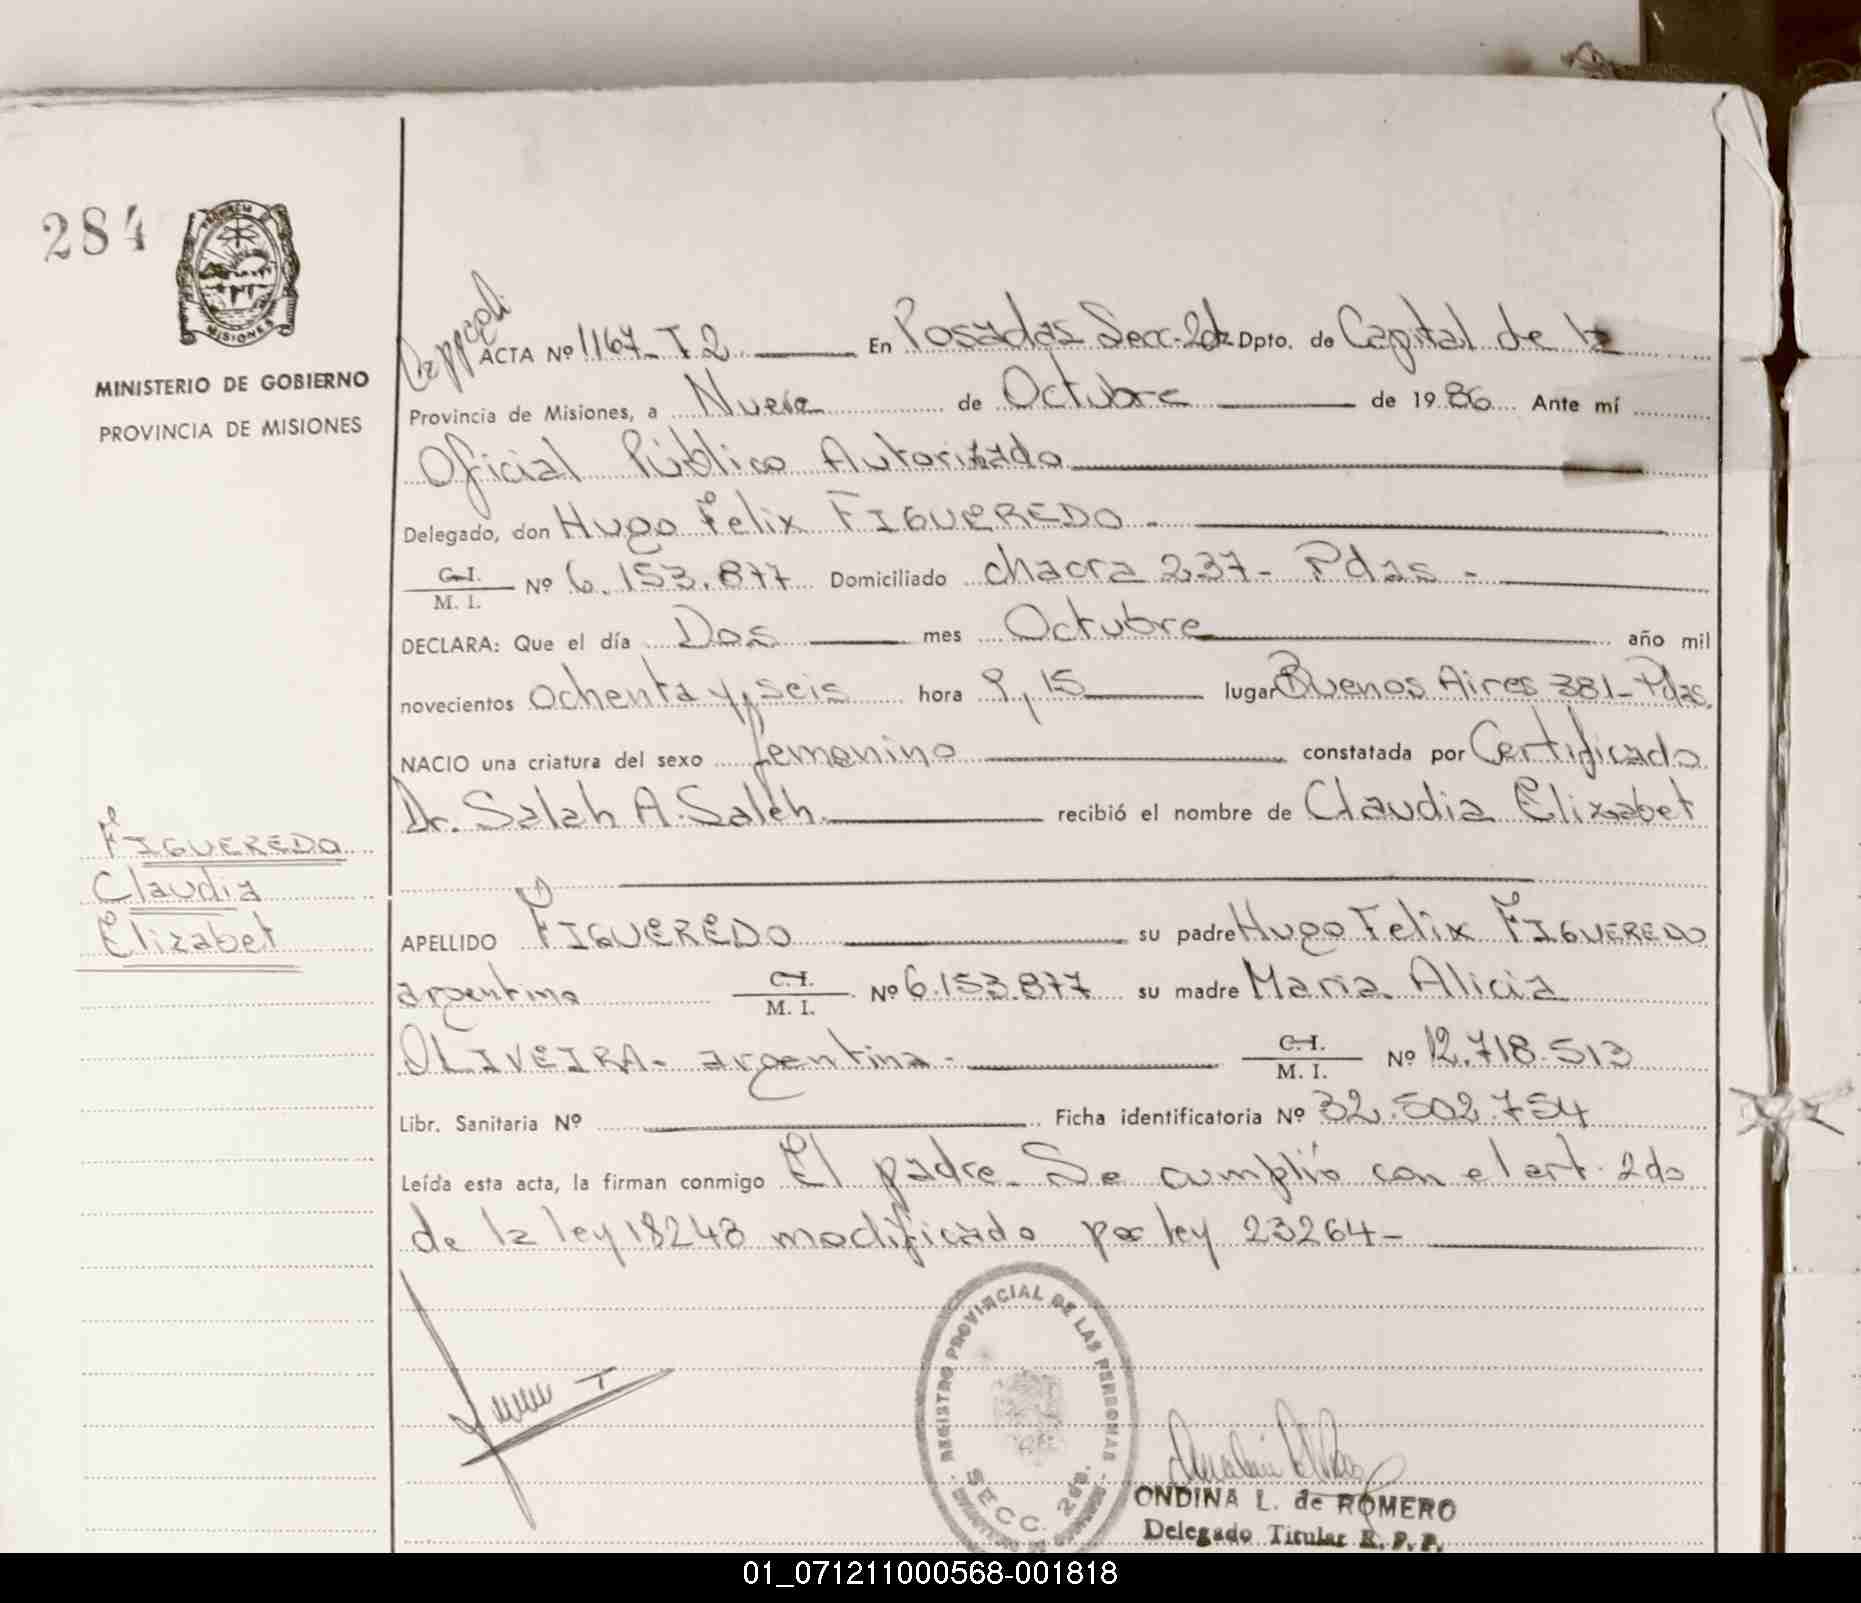 284
PROVINCIA
MISIONES
MINISTERIO DE GOBIERNO
PROVINCIA DE MISIONES
FIGUEREDO
Claudia
Elizabet
ACTA Nº 1167-T.2 En Posadas Secc. 2da Dpto. de Capital de la
Provincia de Misiones, a Nueve de Octubre de 1986 Ante mí
Oficial Público Autorizado
Delegado, don Hugo Felix FIGUEREDO -
C.I.
M. I. Nº 6.153.877 Domiciliado chacra 237- Pdas -
DECLARA: Que el día Dos mes Octubre año mil
novecientos ochenta y seis hora 9,15 lugar Buenos Aires 381-Pdas.
NACIO una criatura del sexo femenino constatada por Certificado
Dr. Salah A. Saleh. recibió el nombre de Claudia Elizabet
APELLIDO FIGUEREDO su padre Hugo Felix FIGUEREDO
argentino C.I.
M. I. Nº 6.153.877 su madre Maria Alicia
OLIVEIRA- argentina- C.I.
M. I. Nº 12.718.513
Libr. Sanitaria Nº Ficha identificatoria Nº 32.502.754
Leída esta acta, la firman conmigo El padre- Se cumplió con el art. 2do
de la ley 18248 modificado por ley 23264-
REGISTRO PROVINCIAL DE LAS PERSONAS
SECC. 2da.
ONDINA L. de ROMERO
Delegado Titular R. P. P.
01_071211000568-001818